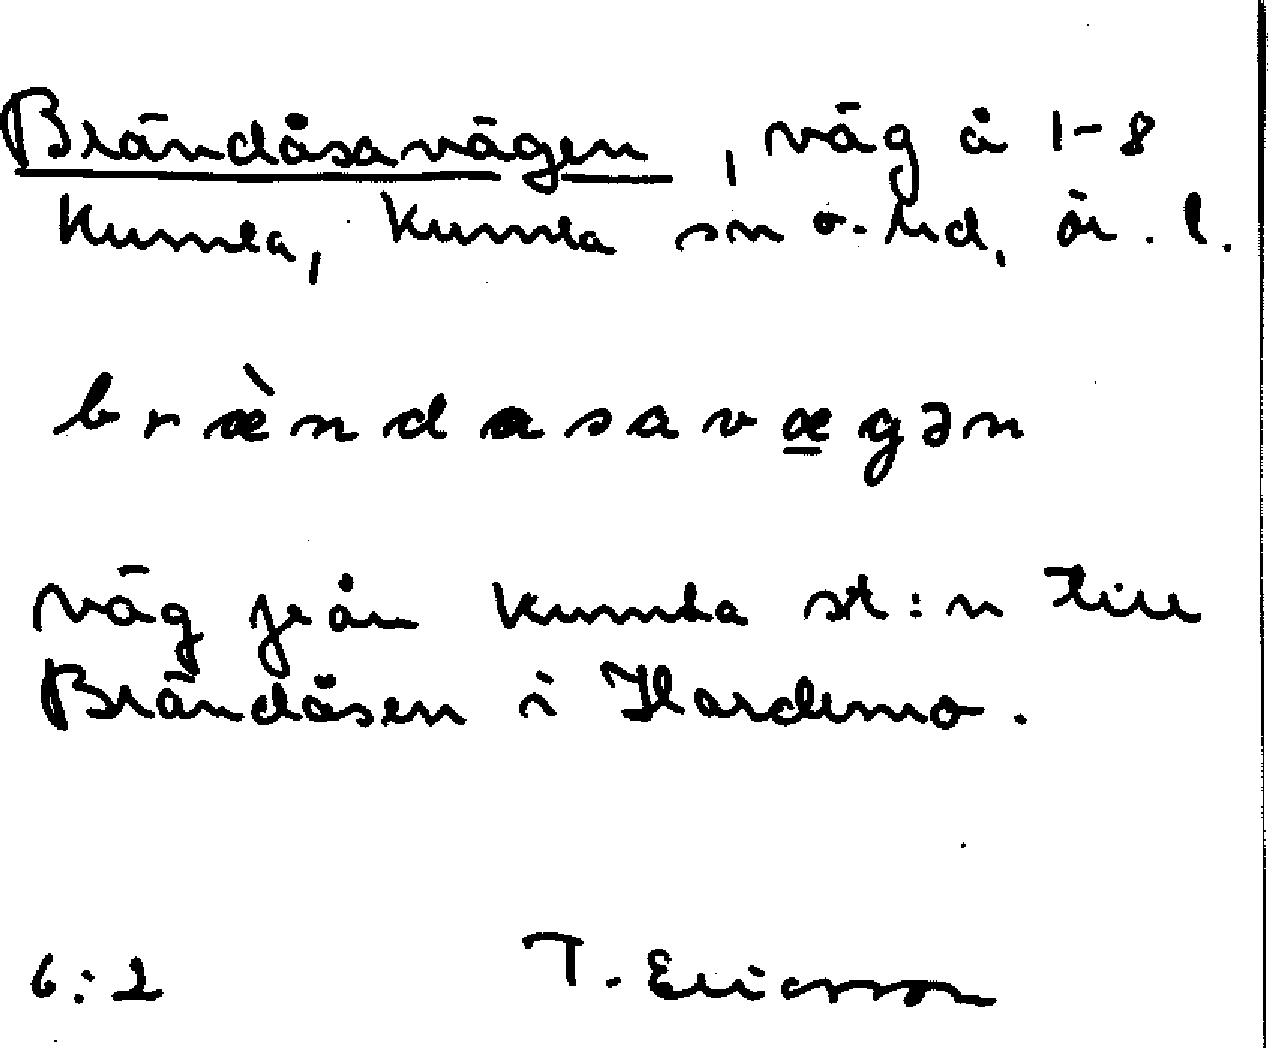 Brändåsavägen, väg å 1-8
Kumla, Kumla sn o. hd, ör. l.
bræ̀ndasavæ̲gən
väg från Kumla st:n till
Brändåsen i Hardemo.
6:2 T. Ericsson